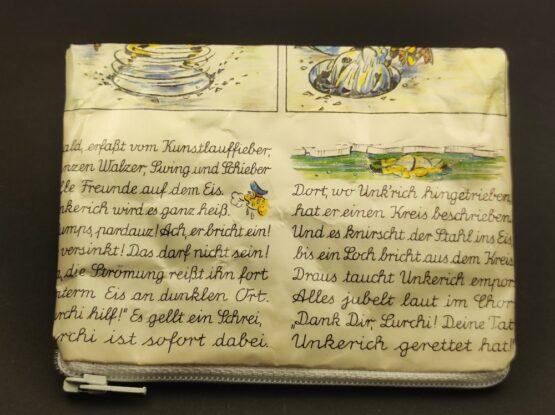 ald, erfaßt vom Kunstlauffieber,
nzen Walzer, Swing und Schieber
lle Freunde auf dem Eis.
nkerich wird es ganz heiß.
umps, pardauz! Ach, er bricht ein!
versinkt! Das darf nicht sein!
, die Strömung reißt ihn fort
nterm Eis an dunklen Ort.
rchi hilf!" Es gellt ein Schrei,
urchi ist sofort dabei.
Dort, wo Unk'rich hingetrieben,
hat er einen Kreis beschrieben
Und es knirscht der Stahl ins Eis
bis ein Loch bricht aus dem Kreis
Draus taucht Unkerich empor.
Alles jubelt laut im Chor
„Dank Dir, Lurchi! Deine Tat
Unkerich gerettet hat!"